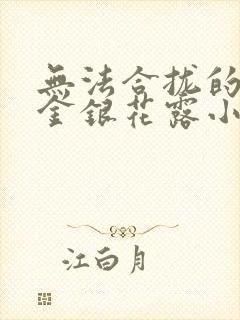 無法合拢的
金銀花露小
江白月